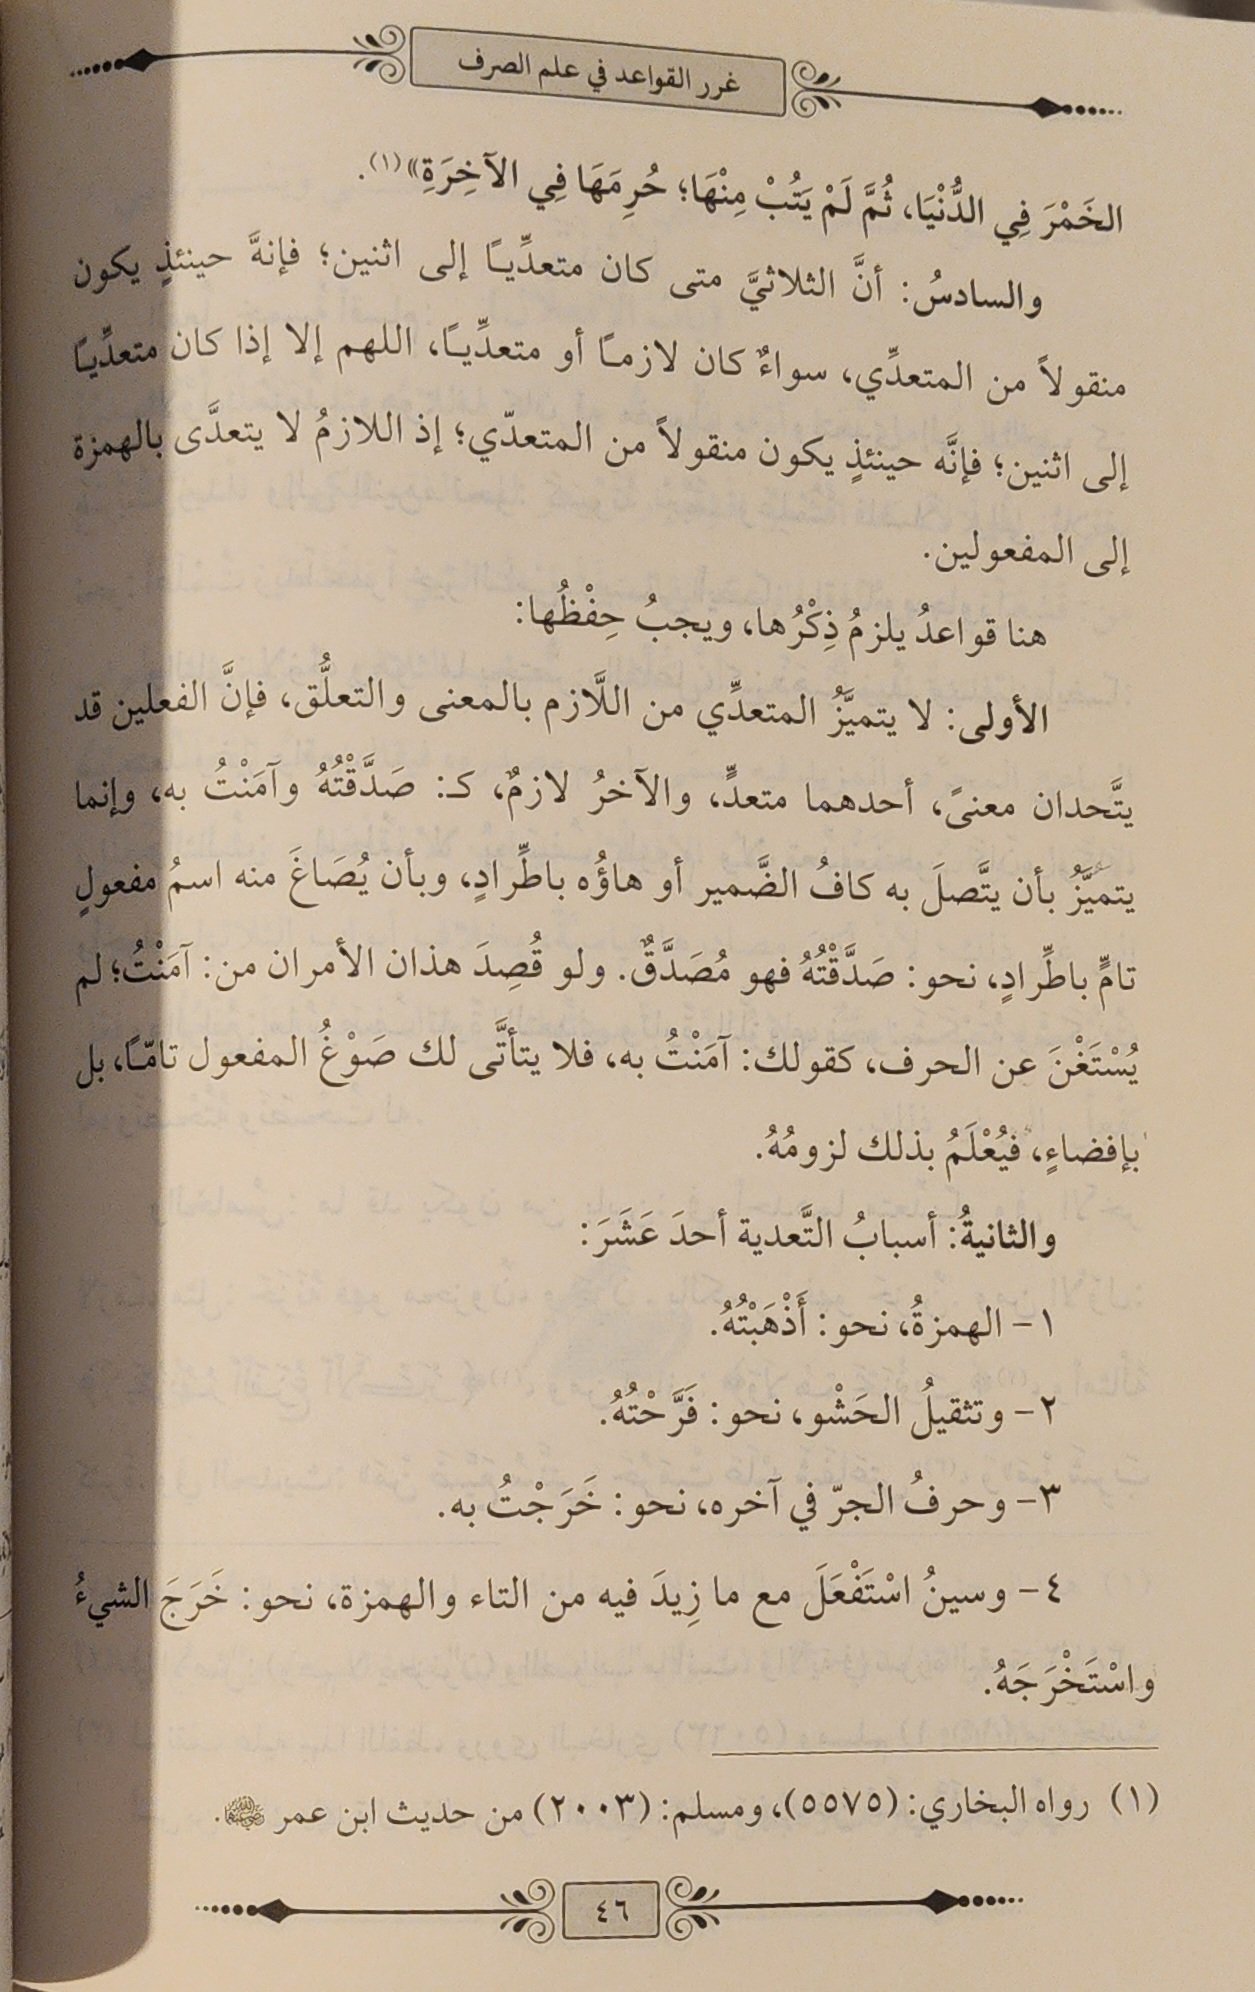 غرر القواعد في علم الصرف
الخَمْرَ فِي الدُّنْيَا، ثُمَّ لَمْ يَتُبْ مِنْهَا؛ حُرِمَهَا فِي الآخِرَةِ»(١).
والسادسُ: أنَّ الثلاثيَّ متى كان متعدِّيـًا إلى اثنين؛ فإنهَّ حينئذٍ يكون
منقولاً من المتعدِّي، سواءٌ كان لازمـًا أو متعدِّيـًا، اللهم إلا إذا كان متعدِّيـًا
إلى اثنين؛ فإنَّه حينئذٍ يكون منقولاً من المتعدّي؛ إذ اللازمُ لا يتعدَّى بالهمزة
إلى المفعولين.
هنا قواعدُ يلزمُ ذِكْرُها، ويجبُ حِفْظُها:
الأولى: لا يتميَّزُ المتعدِّي من اللَّازم بالمعنى والتعلُّق، فإنَّ الفعلين قد
يتَّحدان معنىً، أحدهما متعدٍّ، والآخرُ لازمٌ، كـ: صَدَّقْتُهُ وآمَنْتُ به، وإنما
يتميَّزُ بأن يتَّصلَ به كافُ الضَّمير أو هاؤُه باطِّرادٍ، وبأن يُصَاغَ منه اسمُ مفعولٍ
تامٍّ باطِّرادٍ، نحو: صَدَّقْتُهُ فهو مُصَدَّقٌ. ولو قُصِدَ هذان الأمران من: آمَنْتُ؛ لم
يُسْتَغْنَ عن الحرف، كقولك: آمَنْتُ به، فلا يتأتَّى لك صَوْغُ المفعول تامّـًا، بل
بإفضاءٍ، فيُعْلَمُ بذلك لزومُهُ.
والثانيةُ: أسبابُ التَّعدية أحدَ عَشَرَ:
١- الهمزةُ، نحو: أَذْهَبْتُهُ.
٢- وتثقيلُ الحَشْو، نحو: فَرَّحْتُهُ.
٣- وحرفُ الجرّ في آخره، نحو: خَرَجْتُ به.
٤- وسينُ اسْتَفْعَلَ مع ما زِيدَ فيه من التاء والهمزة، نحو: خَرَجَ الشيءُ
واسْتَخْرَجَهُ.
(١) رواه البخاري: (٥٥٧٥)، ومسلم: (٢٠٠٣) من حديث ابن عمر ﷺ.
٤٦